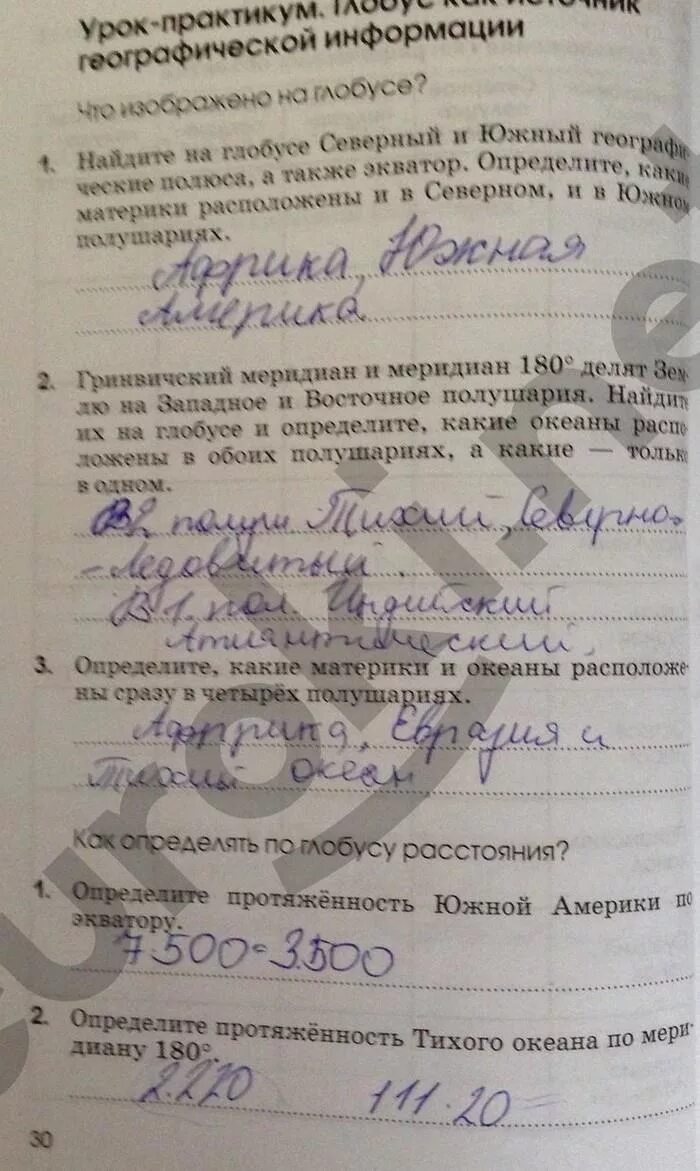 Урок-практикум. Глобус как источник
географической информации
Что изображено на глобусе?
1. Найдите на глобусе Северный и Южный географи-
ческие полюса, а также экватор. Определите, какие
материки расположены и в Северном, и в Южном
полушариях.
Африка, Южная
Америка.
2. Гринвичский меридиан и меридиан 180° делят Зем-
лю на Западное и Восточное полушария. Найдите
их на глобусе и определите, какие океаны распо-
ложены в обоих полушариях, а какие — только
в одном.
В 2 полуш Тихий, Северно-
-Ледовитый.
В 1 пол. Индийский
Атлантический,
3. Определите, какие материки и океаны расположе-
ны сразу в четырёх полушариях.
Африка, Евразия и
Тихий океан
Как определять по глобусу расстояния?
1. Определите протяжённость Южной Америки по
экватору.
7500=3500
2. Определите протяжённость Тихого океана по мери-
диану 180°.
2.220 111·20=
30